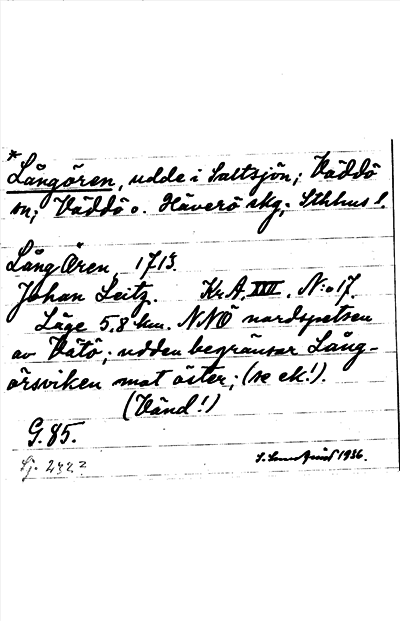 * Långören, udde i Saltsjön; Väddö
sn; Väddö o. Häverö skg; Sthlms l.
Lång Ören, 1713.
Johan Leitz. Kr.A. XVII. N:o 17.
Läge 5,8 km. NNO nordspetsen
av Vätö; udden begränsar Lång-
örsviken mot öster; (se ek!).
(Vänd!)
G. 85.
Lj. 242 2
S. 1936.